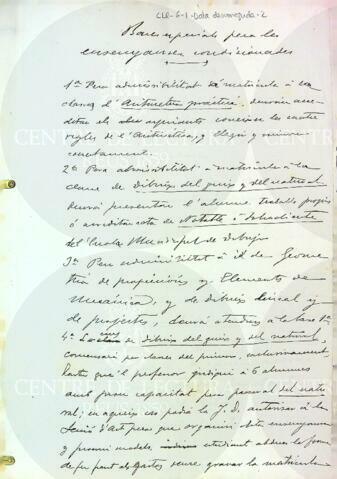 CLR-6-1-Data desconeguda-2
Bases especials pera les
ensenyanses condicionades
1ª Pera admissibilitat á matrícula á la
classe d'Aritmetica práctica, deurán acre-
ditar els alumnes coneixer las cuatre
regles de l'Aritmetica, y llegir y escriure
correctament.
2ª Pera admissibilitat á matrícula á la
classe de dibuix del guix y del natural
deurá presentar l'alumne treballs propis
ó acreditar nota de Notable ó sobresaliente
del Escola Municipal de dibuix
3ª Pera admissibilitat á id. de Geome-
tria de proyeccions y Elements de
Mecánica, y de dibuix lineal y
de projectes, deurá atendres á la base 1ª
4ª La classe de dibuix del guix y del natural,
comensará per classes del primer, exclussivament
hasta que 'l professor judiqui á 6 alumnes
amb prou capacitat pera passar al del natu-
ral; en aqueix cas podrá la J. D. autorisar á la
Secció d'Art pera que organisi dita ensenyansa
y procuri models, estudiant aldemes la forma
de fer front als gastos sense gravar la matrícula
CENTRE DE LECTURA
REUS 1859
CENTRE DE LECTURA